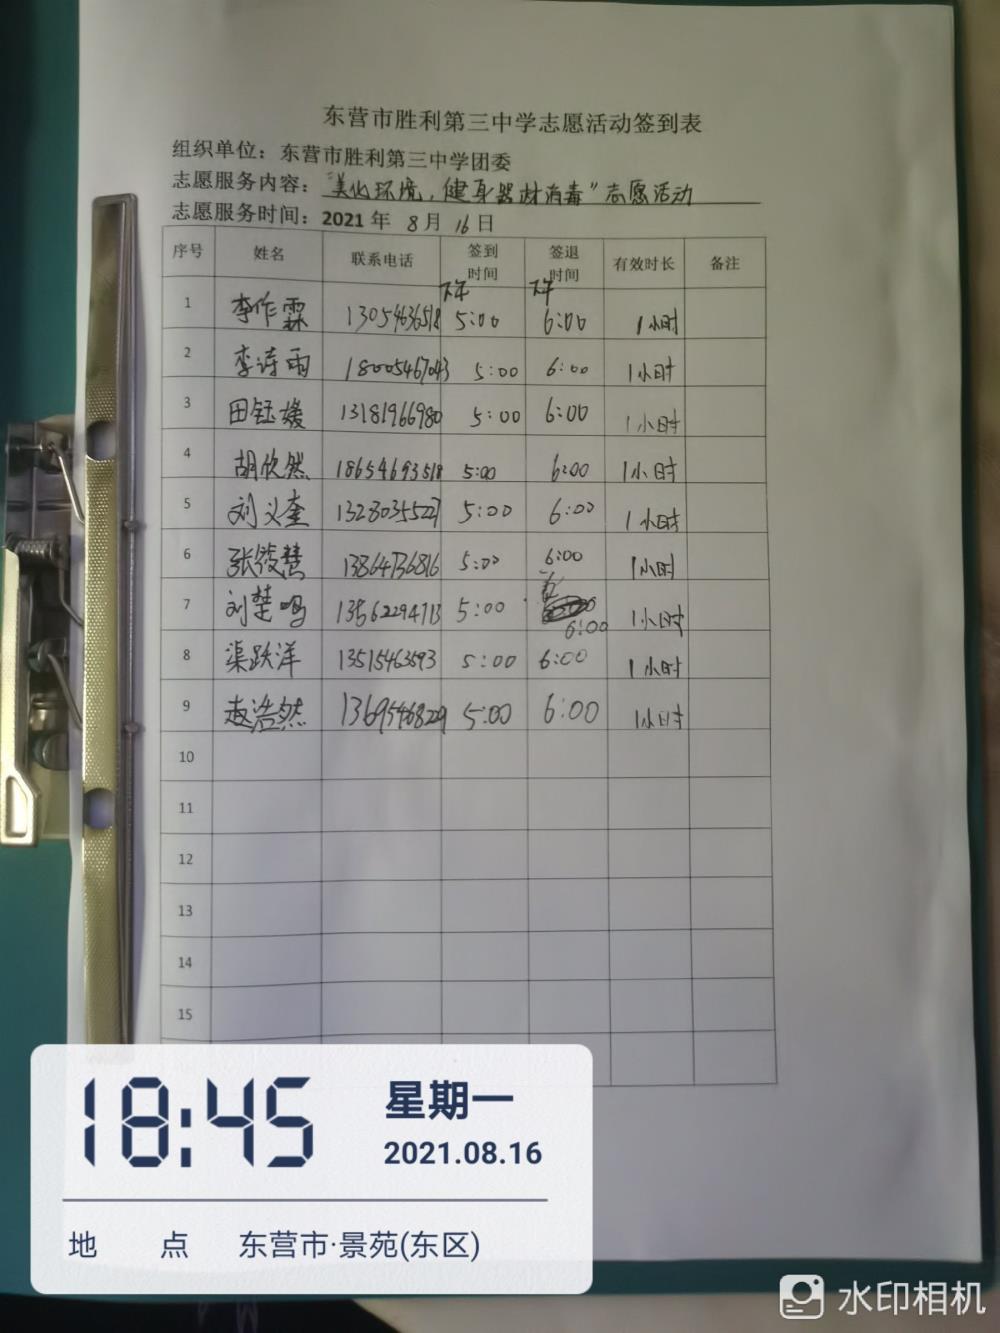 东营市胜利第三中学志愿活动签到表
组织单位：东营市胜利第三中学团委
志愿服务内容："美化环境，健身器材消毒"志愿活动
志愿服务时间：2021年 8月 16日
序号 姓名 联系电话 签到时间 签退时间 有效时长 备注
下午 下午
1 李作霖 13054636518 5:00 6:00 1小时
2 李诗雨 18005467043 5:00 6:00 1小时
3 田钰媛 13181966980 5:00 6:00 1小时
4 胡欣然 18654693518 5:00 6:00 1小时
5 刘义奎 13280355227 5:00 6:00 1小时
6 张筱慧 13864736816 5:00 6:00 1小时
7 刘楚鸣 13562294713 5:00 6:00 1小时
8 渠跃洋 13515463593 5:00 6:00 1小时
9 赵浩然 13695468229 5:00 6:00 1小时
10
11
12
13
14
15
18:45 星期一
2021.08.16
地 点 东营市·景苑(东区)
水印相机